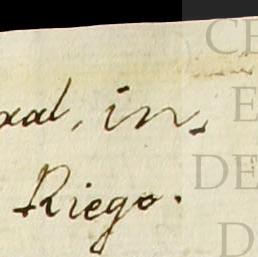 ral, in,
Riego.
CE
E
DE
D